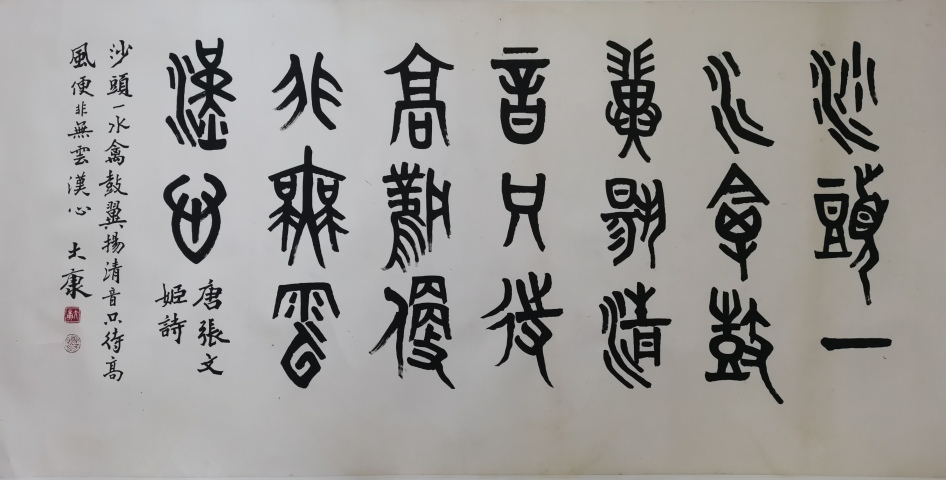 沙頭一
水禽鼓
翼揚清
音只待
高風便
非無雲
漢心
唐張文
姬詩
沙頭一水禽鼓翼揚清音只待高
風便非無雲漢心
大康